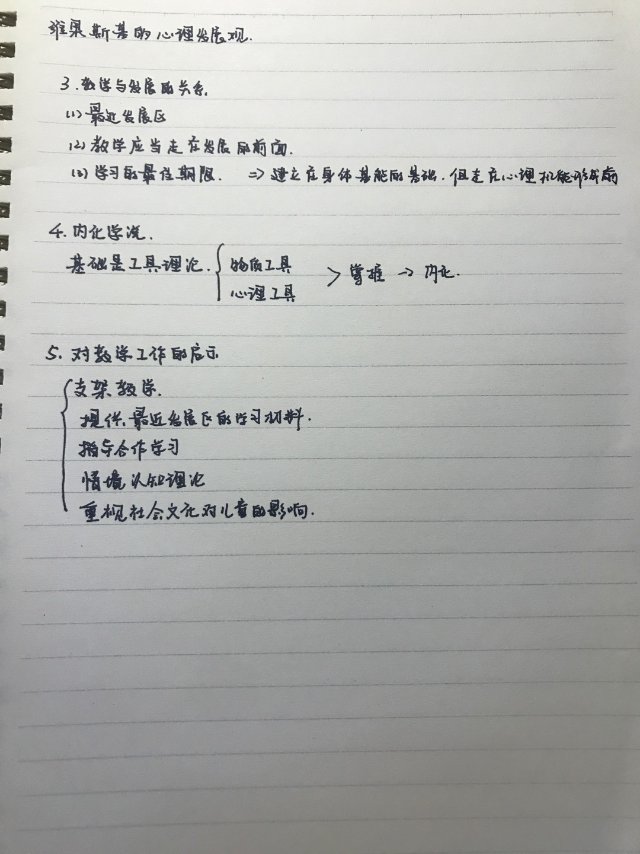 维果斯基的心理发展观.
3. 教学与发展的关系.
(1) 最近发展区
(2) 教学应当走在发展的前面.
(3) 学习的最佳期限. => 建立在身体基能的基础.但走在心理机能形成前
4. 内化学说.
基础是工具理论. { 物质工具 心理工具 > 掌握 -> 内化.
5. 对教学工作的启示
支架教学.
提供.最近发展区的学习材料.
指导合作学习
情境认知理论
重视社会文化对儿童的影响.